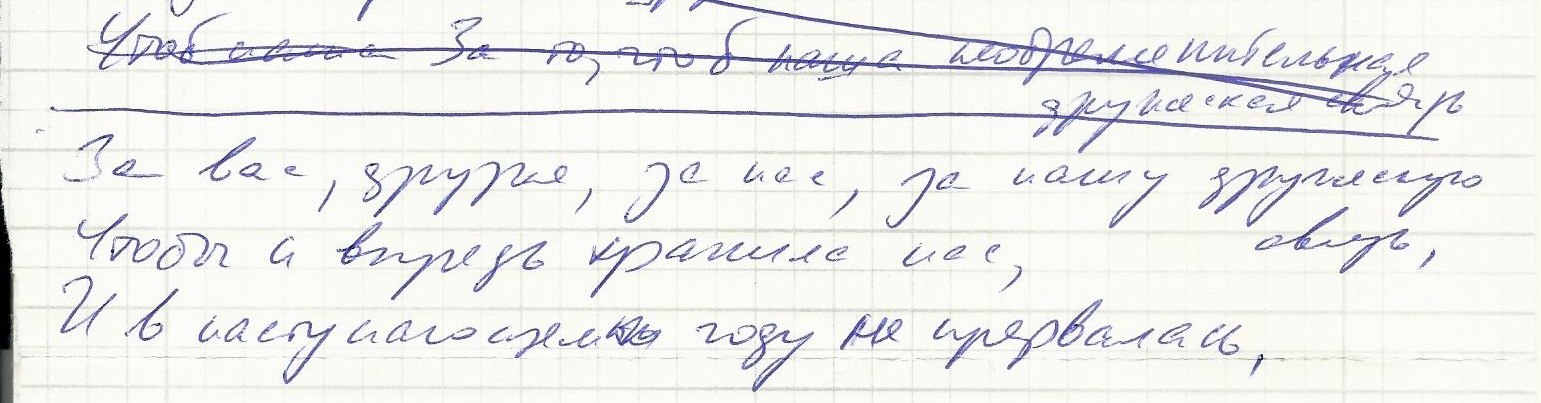 Чтоб наша За то, чтоб наша необременительная
дружеская связь
За вас, друзья, за нас, за нашу дружескую
связь,
Чтобы и впредь хранила нас,
И в наступающем году не прервалась,